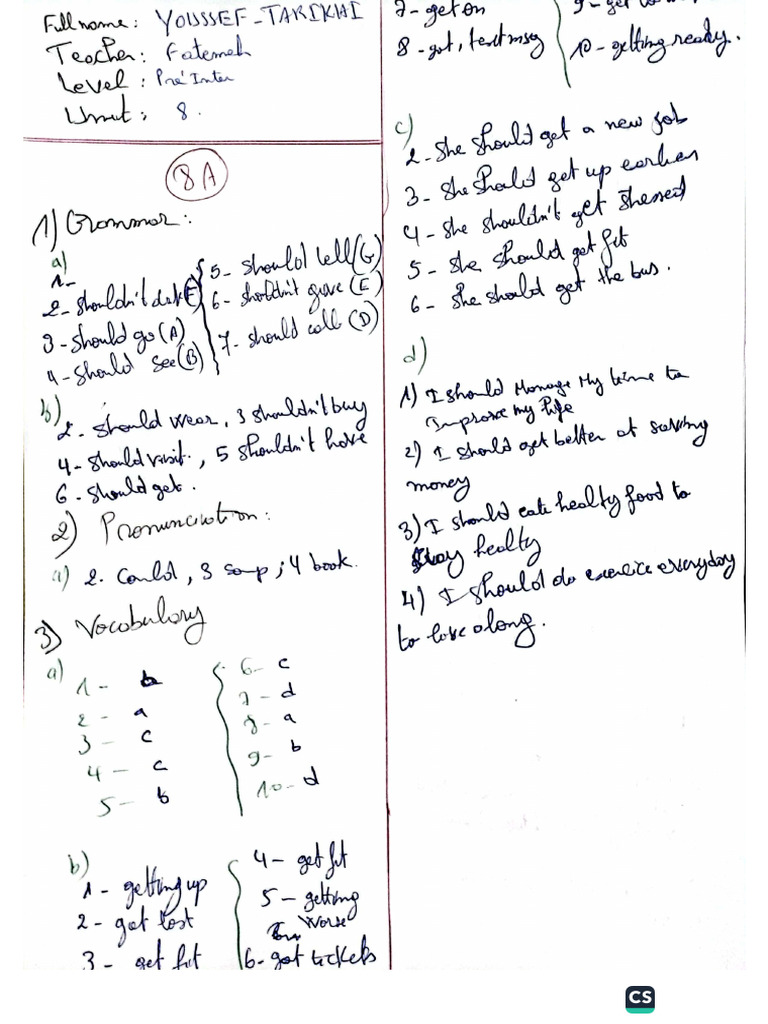 Full name: YOUSSEF-TARIKHI
Teacher: Fatemeh
Level: Pré Inter
Unit: 8.
8A
1) Grammar:
a)
1-
2- shouldn't
3- should go (A)
4- should see (B)
5- should tell (G)
6- shouldn't give (E)
7- should call (D)
b)
2- should wear, 3 shouldn't buy
4- should visit, 5 shouldn't have
6- should get.
2) Pronunciation:
a) 2. Could, 3 soup, 4 book.
3) Vocabulary
a)
1- b
2- a
3- c
4- c
5- b
6- c
7- d
8- a
9- b
10- d
b)
1- getting up
2- got lost
3- get fit
4- get fit
5- getting
worse
6- got tickets
7- get on
8- got, text msg
9- get
10- getting ready.
c)
2- she should get a new job
3- she should get up earlier
4- she shouldn't get stressed
5- she should get fit
6- she should get the bus.
d)
1) I should Manage My time to
Improve my life
2) I should get better at saving
money
3) I should eate healty food to
stay healty
4) I should do exercice everyday
to live along.
CS